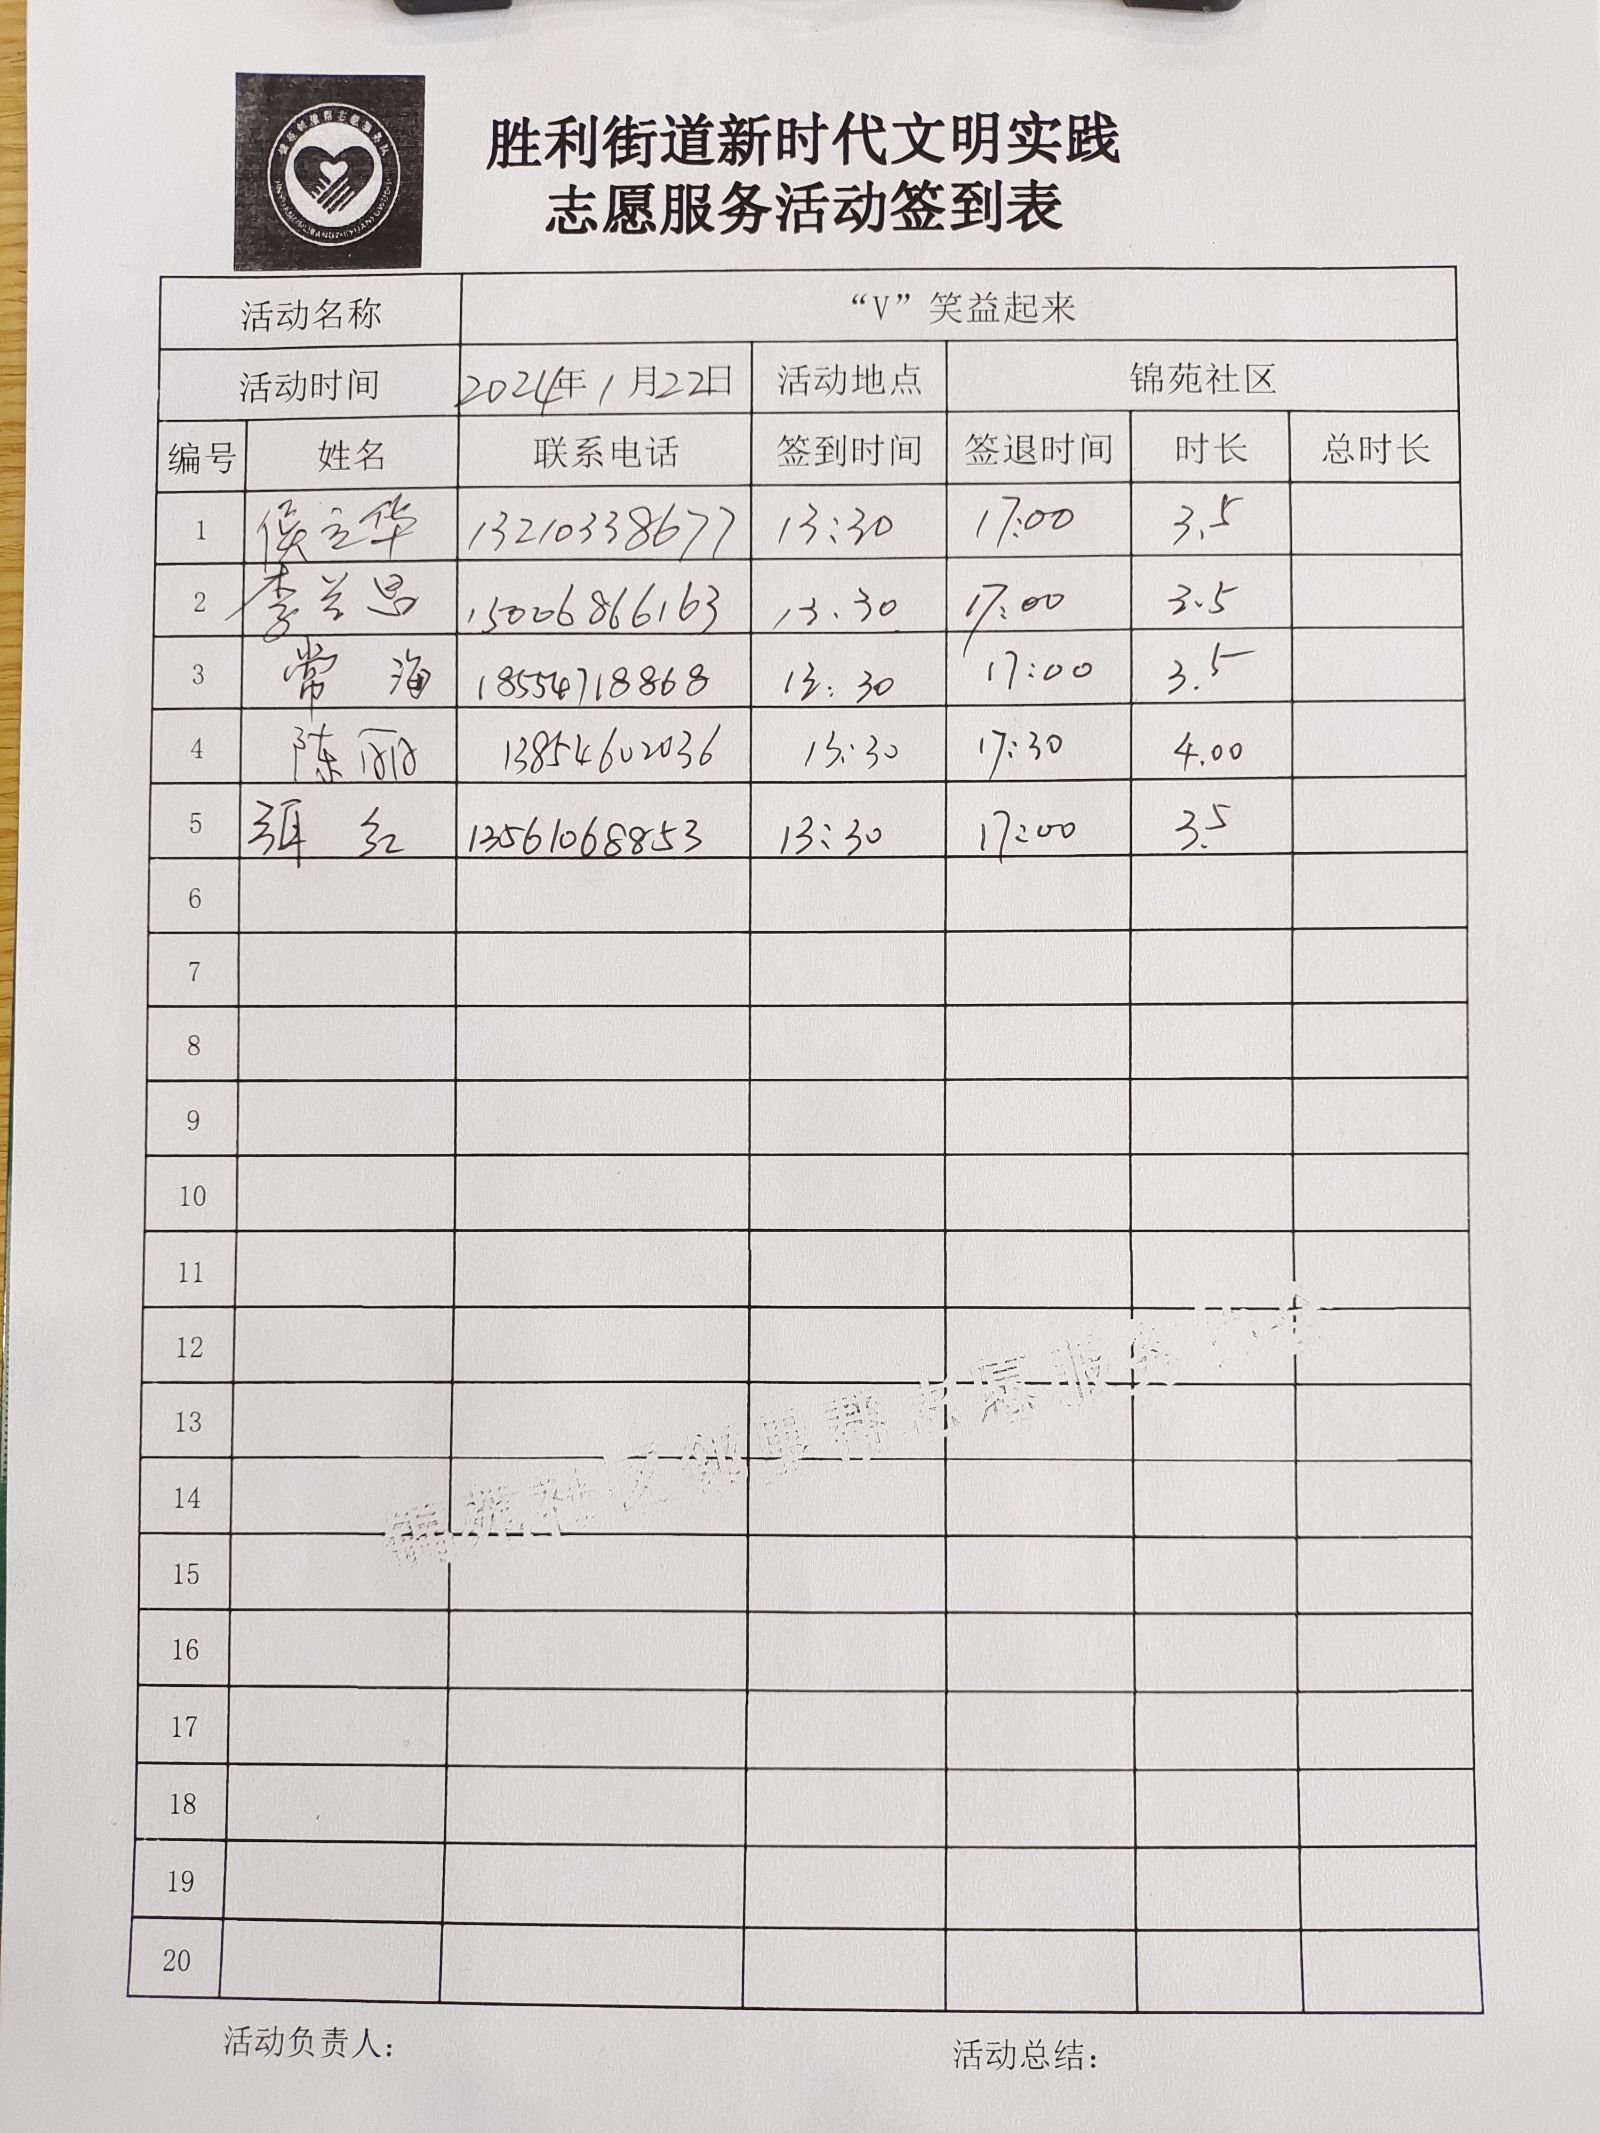 胜利街道新时代文明实践
志愿服务活动签到表
活动名称 “V”笑益起来
活动时间 2024年1月22日 活动地点 锦苑社区
编号 姓名 联系电话 签到时间 签退时间 时长 总时长
1 侯立华 13210338677 13:30 17:00 3.5
2 李兰昌 15006866163 13.30 17:00 3.5
3 常海 18554718868 13:30 17:00 3.5
4 陈丽 13854602036 13:30 17:30 4.00
5 红 13561068853 13:30 17:00 3.5
6
7
8
9
10
11
12
13
14
15
16
17
18
19
20
锦苑社区邻里帮志愿服务队
活动负责人：
活动总结：